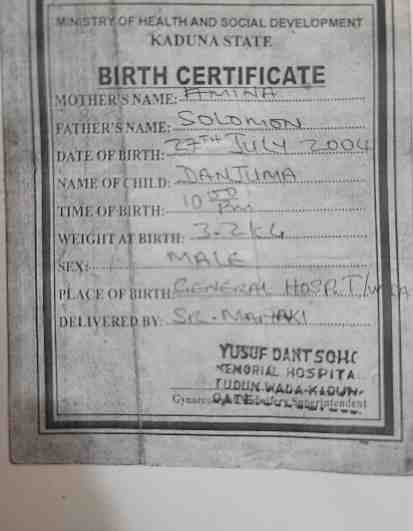 MINISTRY OF HEALTH AND SOCIAL DEVELOPMENT
KADUNA STATE
BIRTH CERTIFICATE
MOTHER'S NAME: AMINA
FATHER'S NAME: SOLOMON
DATE OF BIRTH: 27TH JULY 2004
NAME OF CHILD: DANJUMA
TIME OF BIRTH: 10 00 Pm
WEIGHT AT BIRTH: 3.2KG
SEX: MALE
PLACE OF BIRTH: GENERAL HOSPIT/
DELIVERED BY: SR.
YUSUF DANTSOHO
MEMORIAL HOSPITA
TUDUN WADA-KADUN
DATE
Superintendent